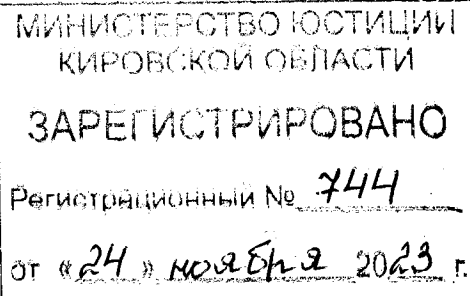 МИНИСТЕРСТВО ЮСТИЦИИ
КИРОВСКОЙ ОБЛАСТИ
ЗАРЕГИСТРИРОВАНО
Регистрационный № 744
от «24» ноября 2023 г.